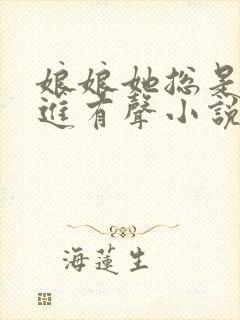 娘娘她总是
進有聲小說
海蓮生